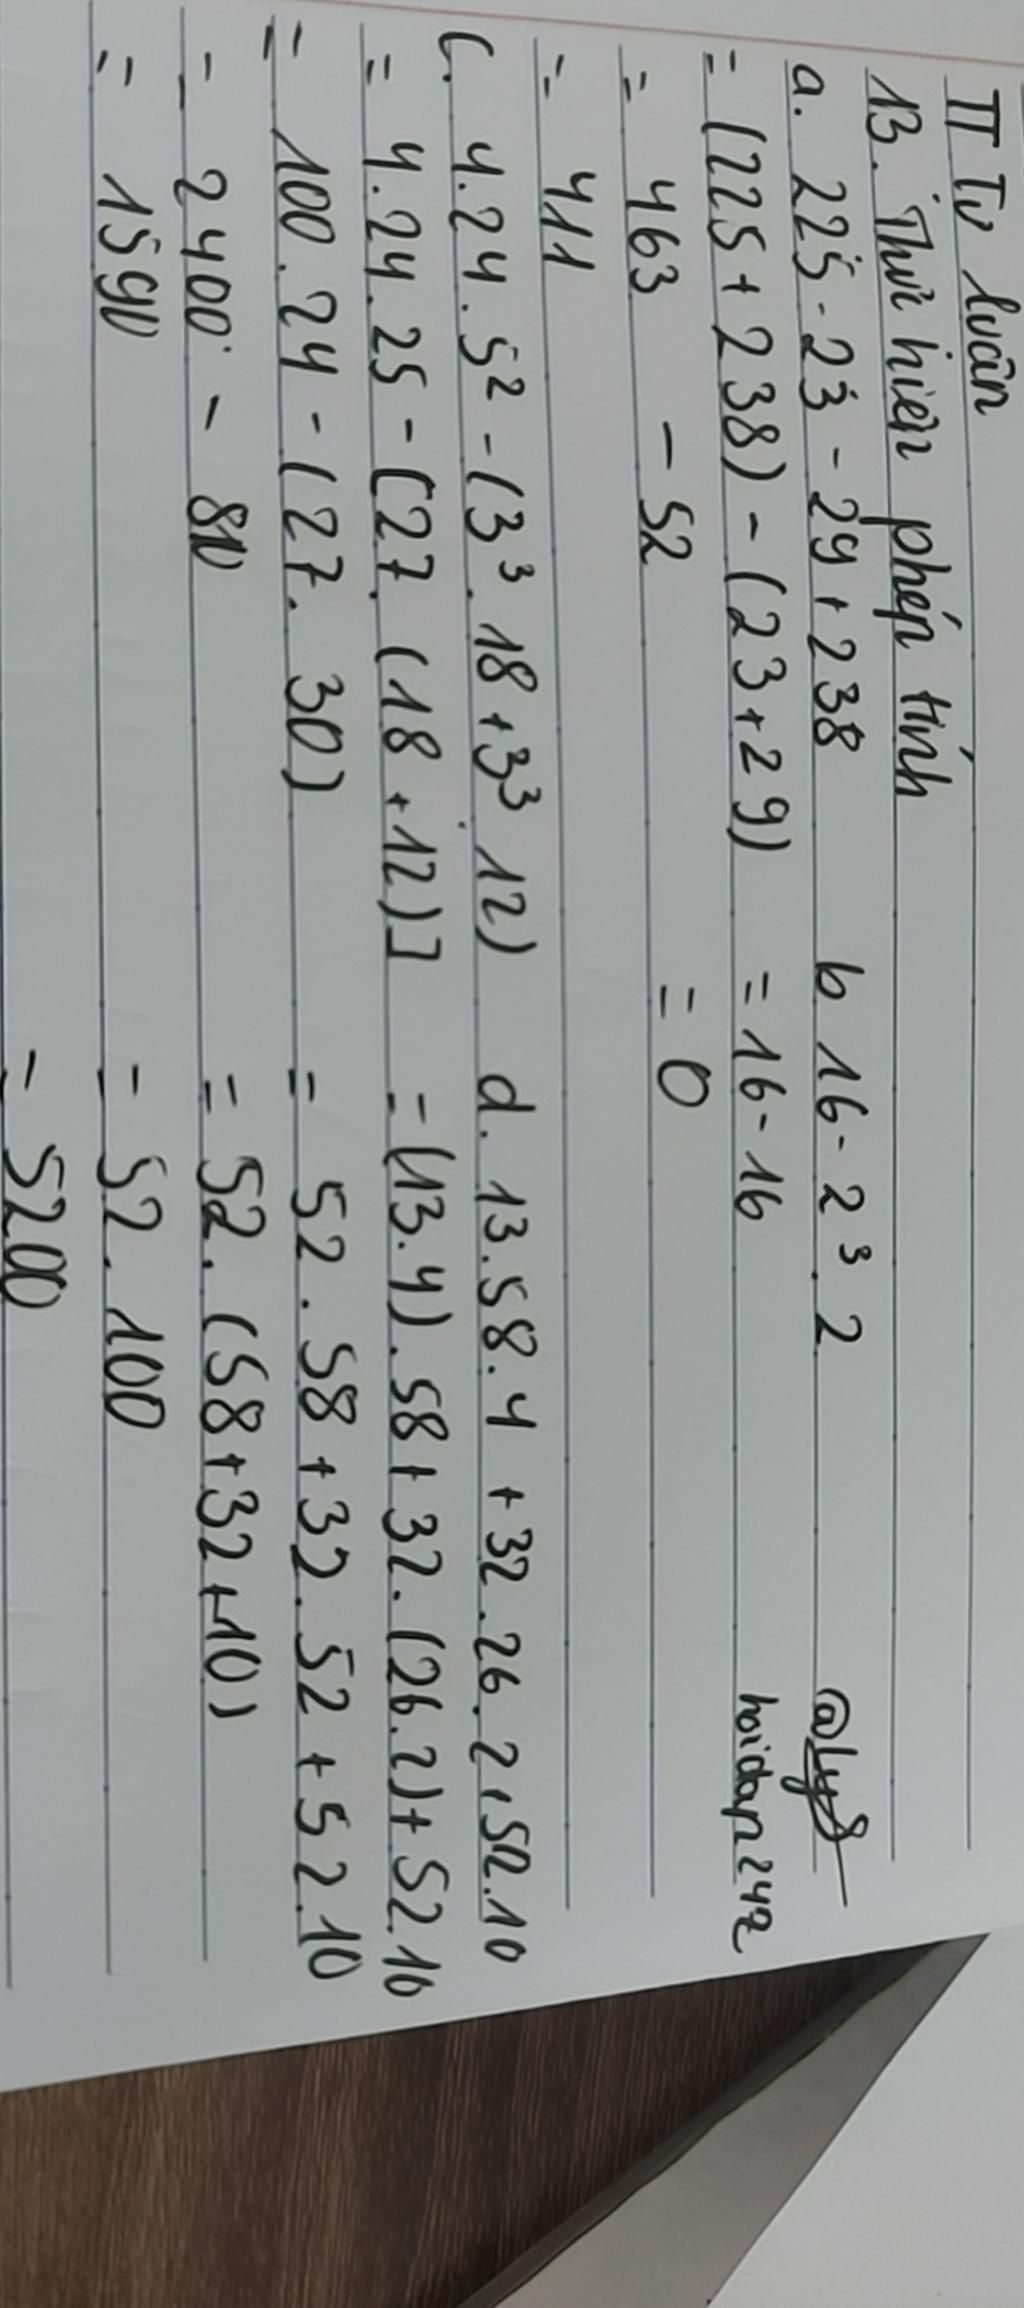 II Tự luân
13. Thưc hiên phép tính
a. 225 - 23 - 29 + 238
= (225 + 238) - (23 + 29)
= 463 - 52
= 411
b 16 - 2³ . 2
= 16 - 16
= 0
@Ly8
hoidap247
c. 4.24.5² - (3³.18 + 3³.12)
= 4.24.25 - [27.(18 + 12)]
= 100.24 - (27.30)
= 2400 - 810
= 1590
d. 13.58.4 + 32.26.2 + 52.10
= (13.4).58 + 32.(26.2) + 52.10
= 52.58 + 32.52 + 52.10
= 52.(58 + 32 + 10)
= 52.100
= 5200